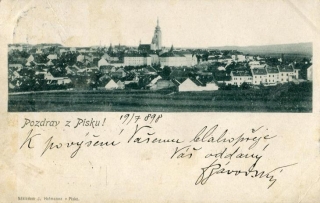 Pozdrav z Písku!
19/7 898
K povýšení Vašemu blahopřeje
Váš oddaný